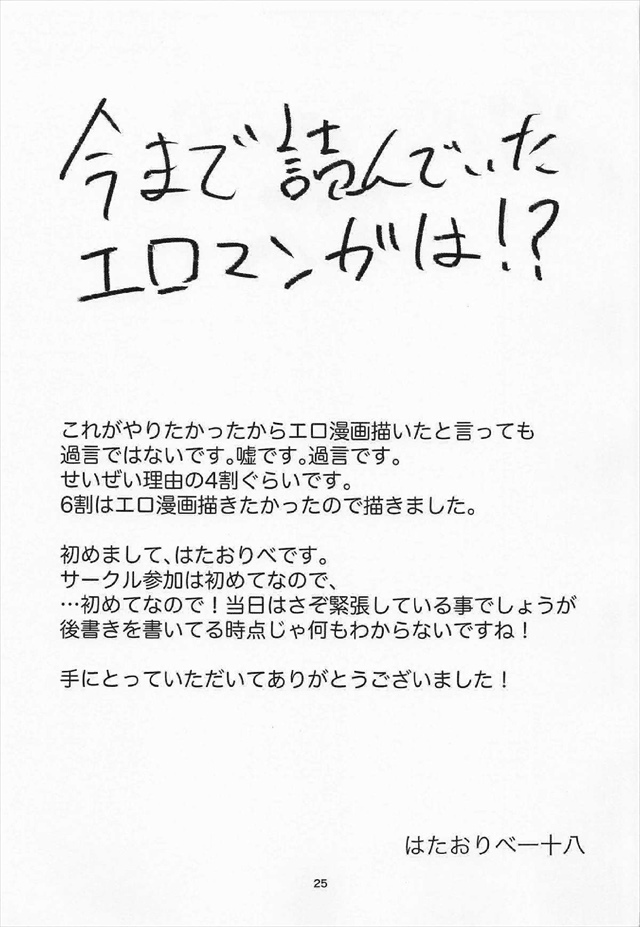 今まで読んでいた
エロマンガは!?
これがやりたかったからエロ漫画描いたと言っても
過言ではないです。嘘です。過言です。
せいぜい理由の4割ぐらいです。
6割はエロ漫画描きたかったので描きました。
初めまして、はたおりべです。
サークル参加は初めてなので、
…初めてなので！当日はさぞ緊張している事でしょうが
後書きを書いてる時点じゃ何もわからないですね！
手にとっていただいてありがとうございました！
はたおりべ一十八
25